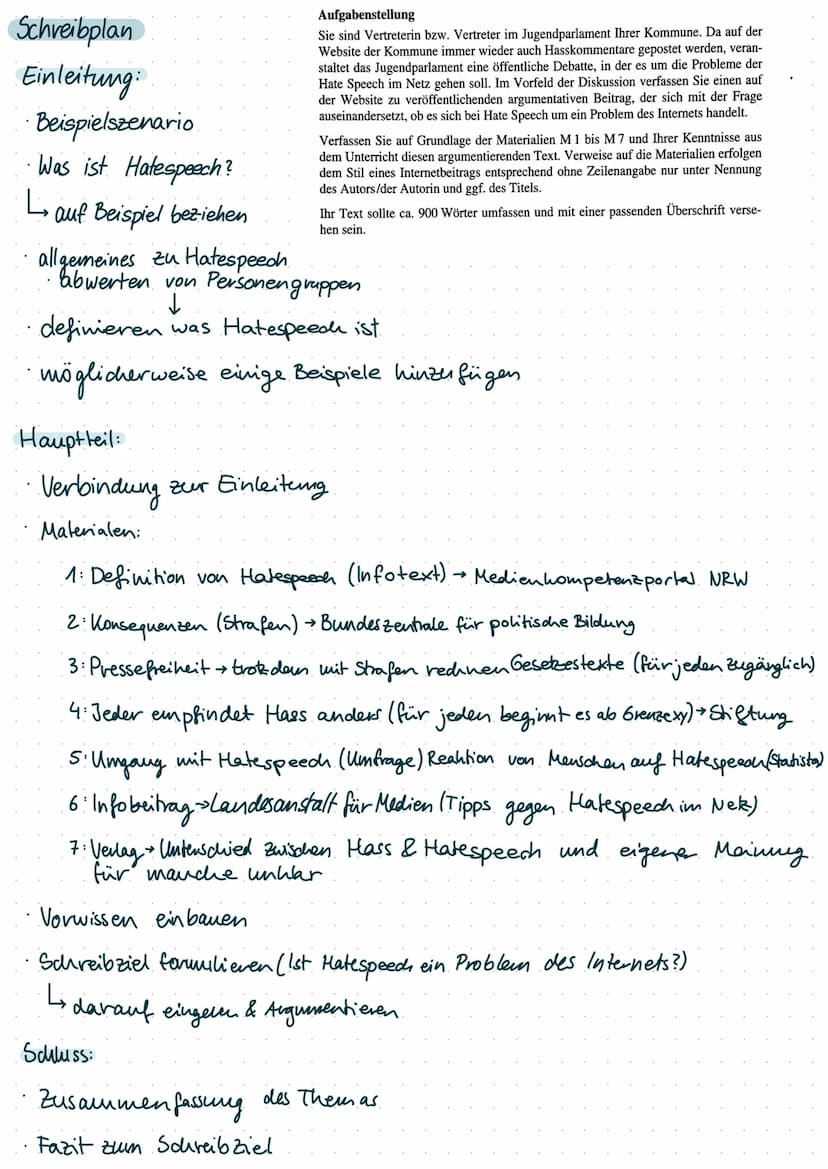 Schreibplan
Einleitung:
· Beispielszenario
· Was ist Hatespeech?
↳ auf Beispiel beziehen
· allgemeines zu Hatespeech
· abwerten von Personengruppen
↓
· definieren was Hatespeech ist
· möglicherweise einige Beispiele hinzufügen
Aufgabenstellung
Sie sind Vertreterin bzw. Vertreter im Jugendparlament Ihrer Kommune. Da auf der
Website der Kommune immer wieder auch Hasskommentare gepostet werden, veran-
staltet das Jugendparlament eine öffentliche Debatte, in der es um die Probleme der
Hate Speech im Netz gehen soll. Im Vorfeld der Diskussion verfassen Sie einen auf
der Website zu veröffentlichenden argumentativen Beitrag, der sich mit der Frage
auseinandersetzt, ob es sich bei Hate Speech um ein Problem des Internets handelt.
Verfassen Sie auf Grundlage der Materialien M 1 bis M 7 und Ihrer Kenntnisse aus
dem Unterricht diesen argumentierenden Text. Verweise auf die Materialien erfolgen
dem Stil eines Internetbeitrags entsprechend ohne Zeilenangabe nur unter Nennung
des Autors/der Autorin und ggf. des Titels.
Ihr Text sollte ca. 900 Wörter umfassen und mit einer passenden Überschrift verse-
hen sein.
Hauptteil:
· Verbindung zur Einleitung
· Materialen:
1: Definition von Hatespeech (Infotext) → Medienkompetenzportal NRW
2: Konsequenzen (Strafen) → Bundeszentrale für politische Bildung
3: Pressefreiheit → trotzdem mit Strafen rechnen Gesetzestexte (für jeden zugänglich)
4: Jeder empfindet Hass anders (für jeden beginnt es ab Grenze xy) → Stiftung
5: Umgang mit Hatespeech (Umfrage) Reaktion von Menschen auf Hatespeech (Statista)
6: Infobeitrag → Landesanstalt für Medien (Tipps gegen Hatespeech im Netz)
7: Verlag → Unterschied zwischen Hass & Hatespeech und eigener Meinung
für manche unklar
· Vorwissen einbauen
· Schreibziel formulieren (Ist Hatespeech ein Problem des Internets?)
↳ darauf eingehen & Argumentieren
Schluss:
· Zusammenfassung des Themas
· Fazit zum Schreibziel